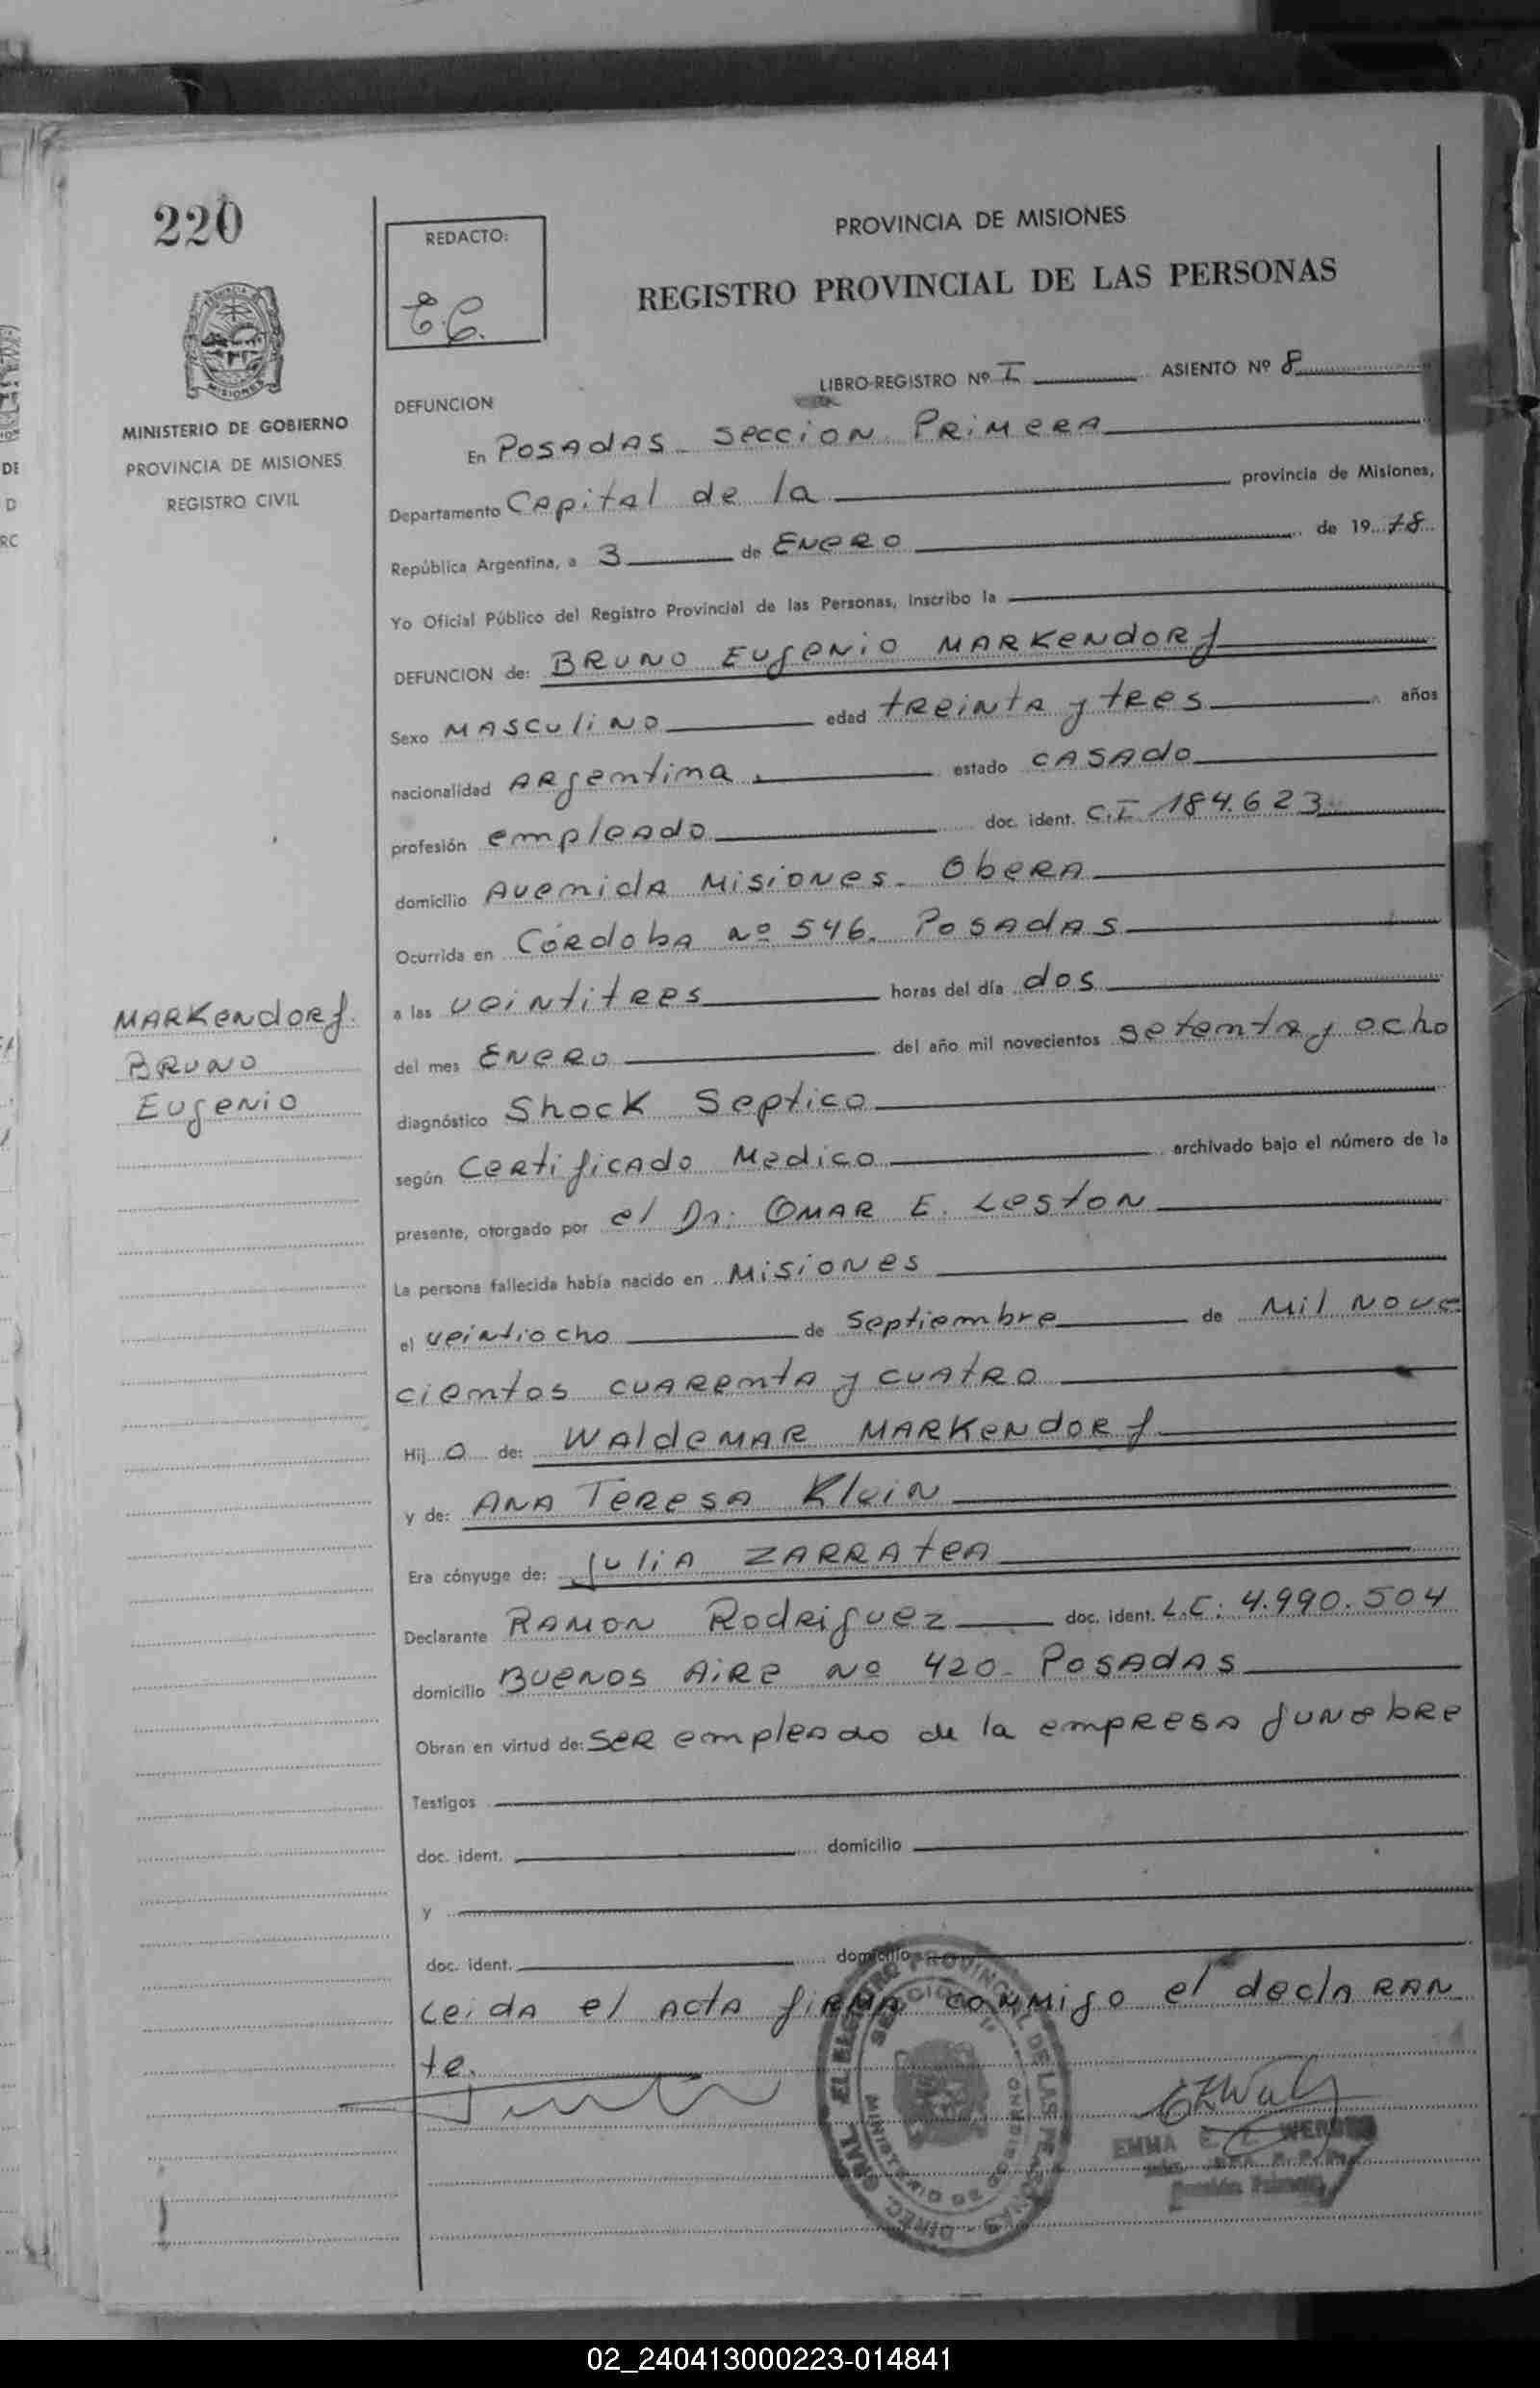 220
REDACTO:
E.C.
PROVINCIA DE MISIONES
REGISTRO PROVINCIAL DE LAS PERSONAS
MINISTERIO DE GOBIERNO
PROVINCIA DE MISIONES
REGISTRO CIVIL
LIBRO-REGISTRO Nº I ASIENTO Nº 8
DEFUNCION
En POSADAS SECCION PRIMERA
Departamento Capital de la provincia de Misiones,
República Argentina, a 3 de ENERO de 1978
Yo Oficial Público del Registro Provincial de las Personas, inscribo la
DEFUNCION de: BRUNO EUGENIO MARKENDORf
Sexo MASCULINO edad tREINTA y tRES años
nacionalidad ARgentina estado CASADO
profesión empleado doc. ident. C.I 184.623
domicilio Avenida Misiones. Obera
Ocurrida en Córdoba nº 546. Posadas
a las veintitres horas del día dos
del mes ENERO del año mil novecientos setenta y ocho
diagnóstico Shock Septico
según Certificado Medico archivado bajo el número de la
presente, otorgado por el Dr: OMAR E. Leston
La persona fallecida había nacido en Misiones
el veintiocho de Septiembre de Mil nove
cientos cuarenta y cuatro
Hijo de: Waldemar MARKENDORf
y de: ANA TERESA Klein
Era cónyuge de: Julia ZARRATEA
Declarante RAMON Rodriguez doc. ident. L.E: 4.990.504
domicilio Buenos Aire Nº 420. Posadas
Obran en virtud de: ser empleado de la empresa funebre
Testigos
doc. ident. domicilio
y
doc. ident. domicilio
Leida el acta firma conmigo el declaran
te.
MARKENDORf
BRUNO
Eugenio
DIREC. GRAL. DEL REGISTRO PROVINCIAL DE LAS PERSONAS
SECCION 1ª
MINISTERIO DE GOBIERNO
EMMA E.
02_240413000223-014841